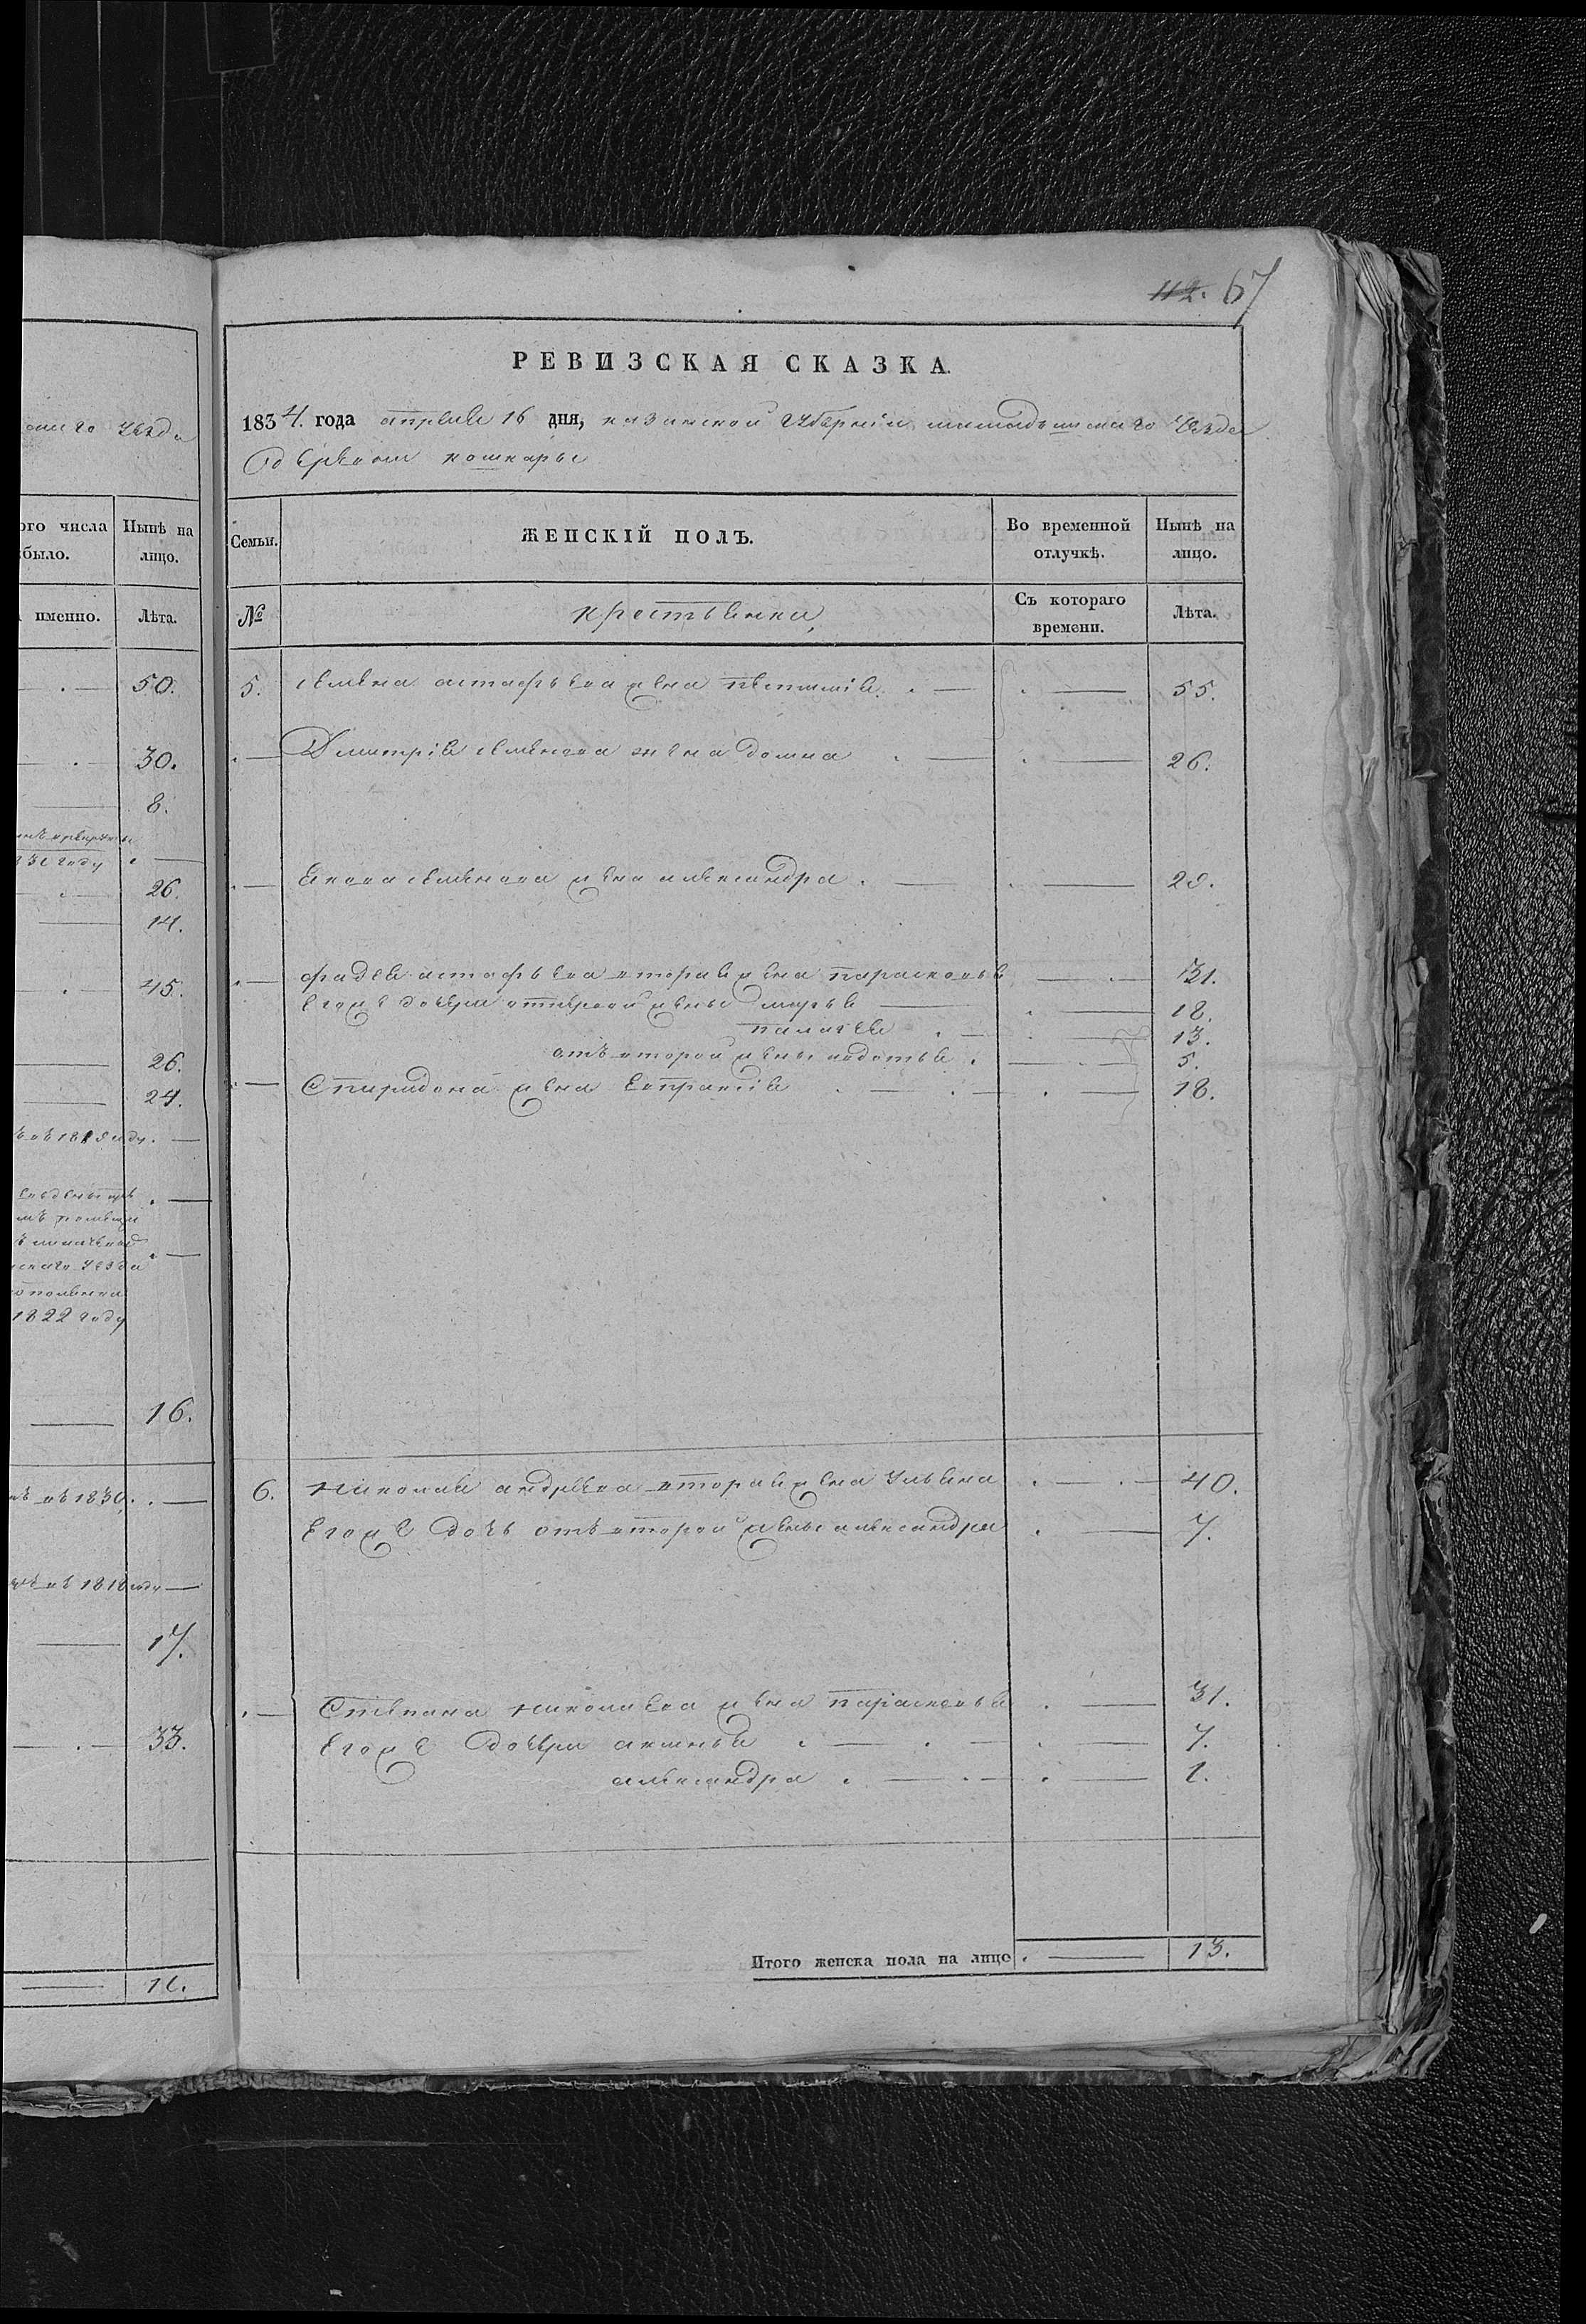 112. 67
РЕВИЗСКАЯ СКАЗКА.
1834. года апреля 16 дня, казанской губернии мамадышскаго уезда
деревни кошкары
Семьи. ЖЕНСКІЙ ПОЛЪ. Во временной отлучкѣ. Нынѣ на лицо.
№ крестьянки, Съ котораго времени. Лѣта.
5. семена астафьева жена 55.
Дмитрія семенова жена домна 26.
якова семенова жена александра
фадея астафьева вторая жена парасковья 31.
Его же дочери от первой жены марья 18.
палагея 13.
отъ второй жены 5.
Спиридона жена 18.
6. николая андреева вторая жена ульяна 40.
Его же дочь отъ второй жены александра 7.
Степана николаева жена парасковья 31.
Его же дочери аксинья 7.
александра 1.
Итого женска пола на лицо 13.
уезда
ого числа
было.
Нынѣ на
лицо.
именно. Лѣта.
50.
30.
8.
году
26.
14.
45.
26.
24.
уезда
1822 году
16.
въ 1830.
въ 1818 году
17.
33.